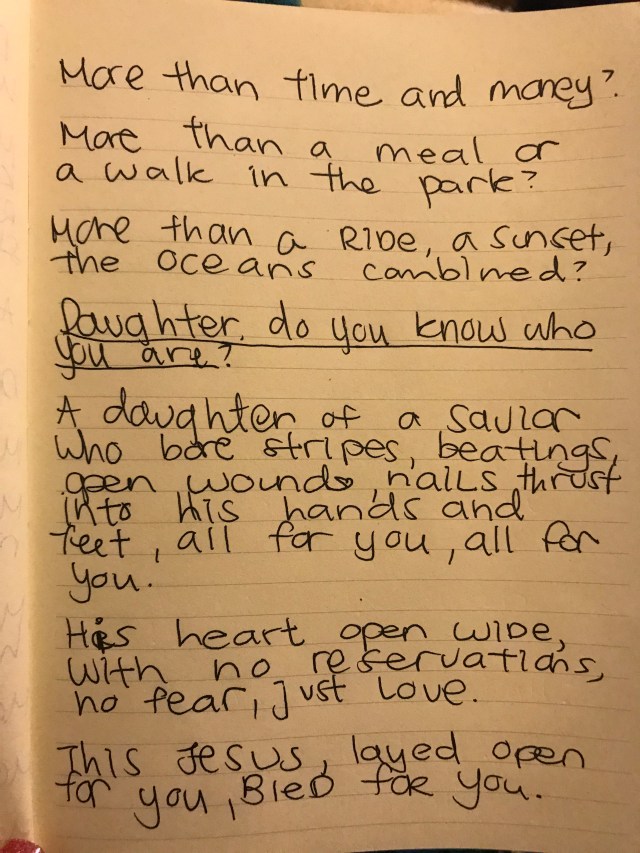 More than time and money?
More than a meal or
a walk in the park?
More than a RIDe, a sunset,
the oceans combined?
Daughter, do you know who
you are?
A daughter of a savior
who bore stripes, beatings,
open wounds, nails thrust
into his hands and
feet, all for you, all for
you.
His heart open wiDe,
with no reservations,
no fear, just love.
This Jesus, layed open
for you, BleD for you.